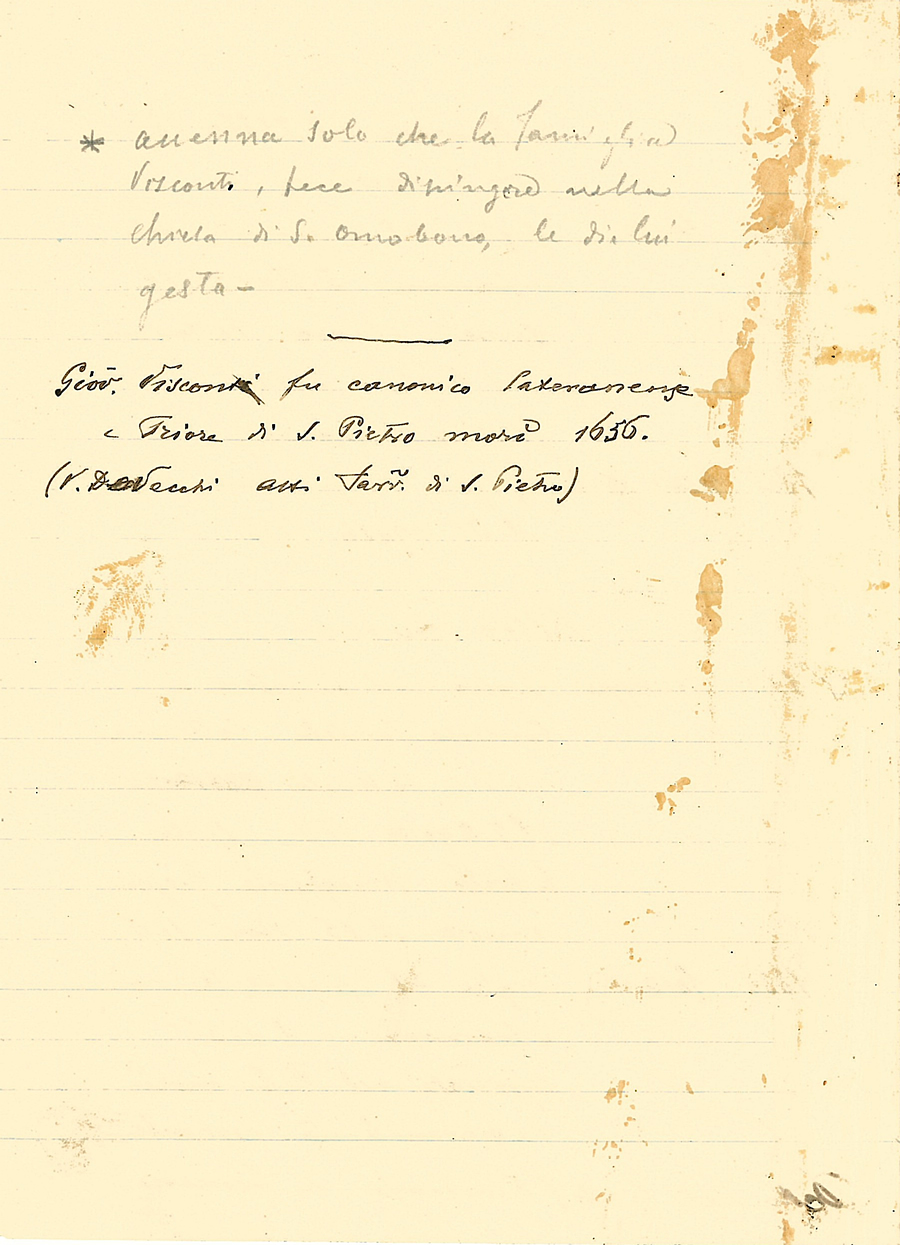 * accenna solo che la famiglia
Visconti, fece dipingere nella
chiesa di S. Omobono, le di lui
gesta -
Giov. Visconti fu canonico lateranense
e Priore di S. Pietro morì 1656.
(V. De Vecchi atti Parr. di S. Pietro)